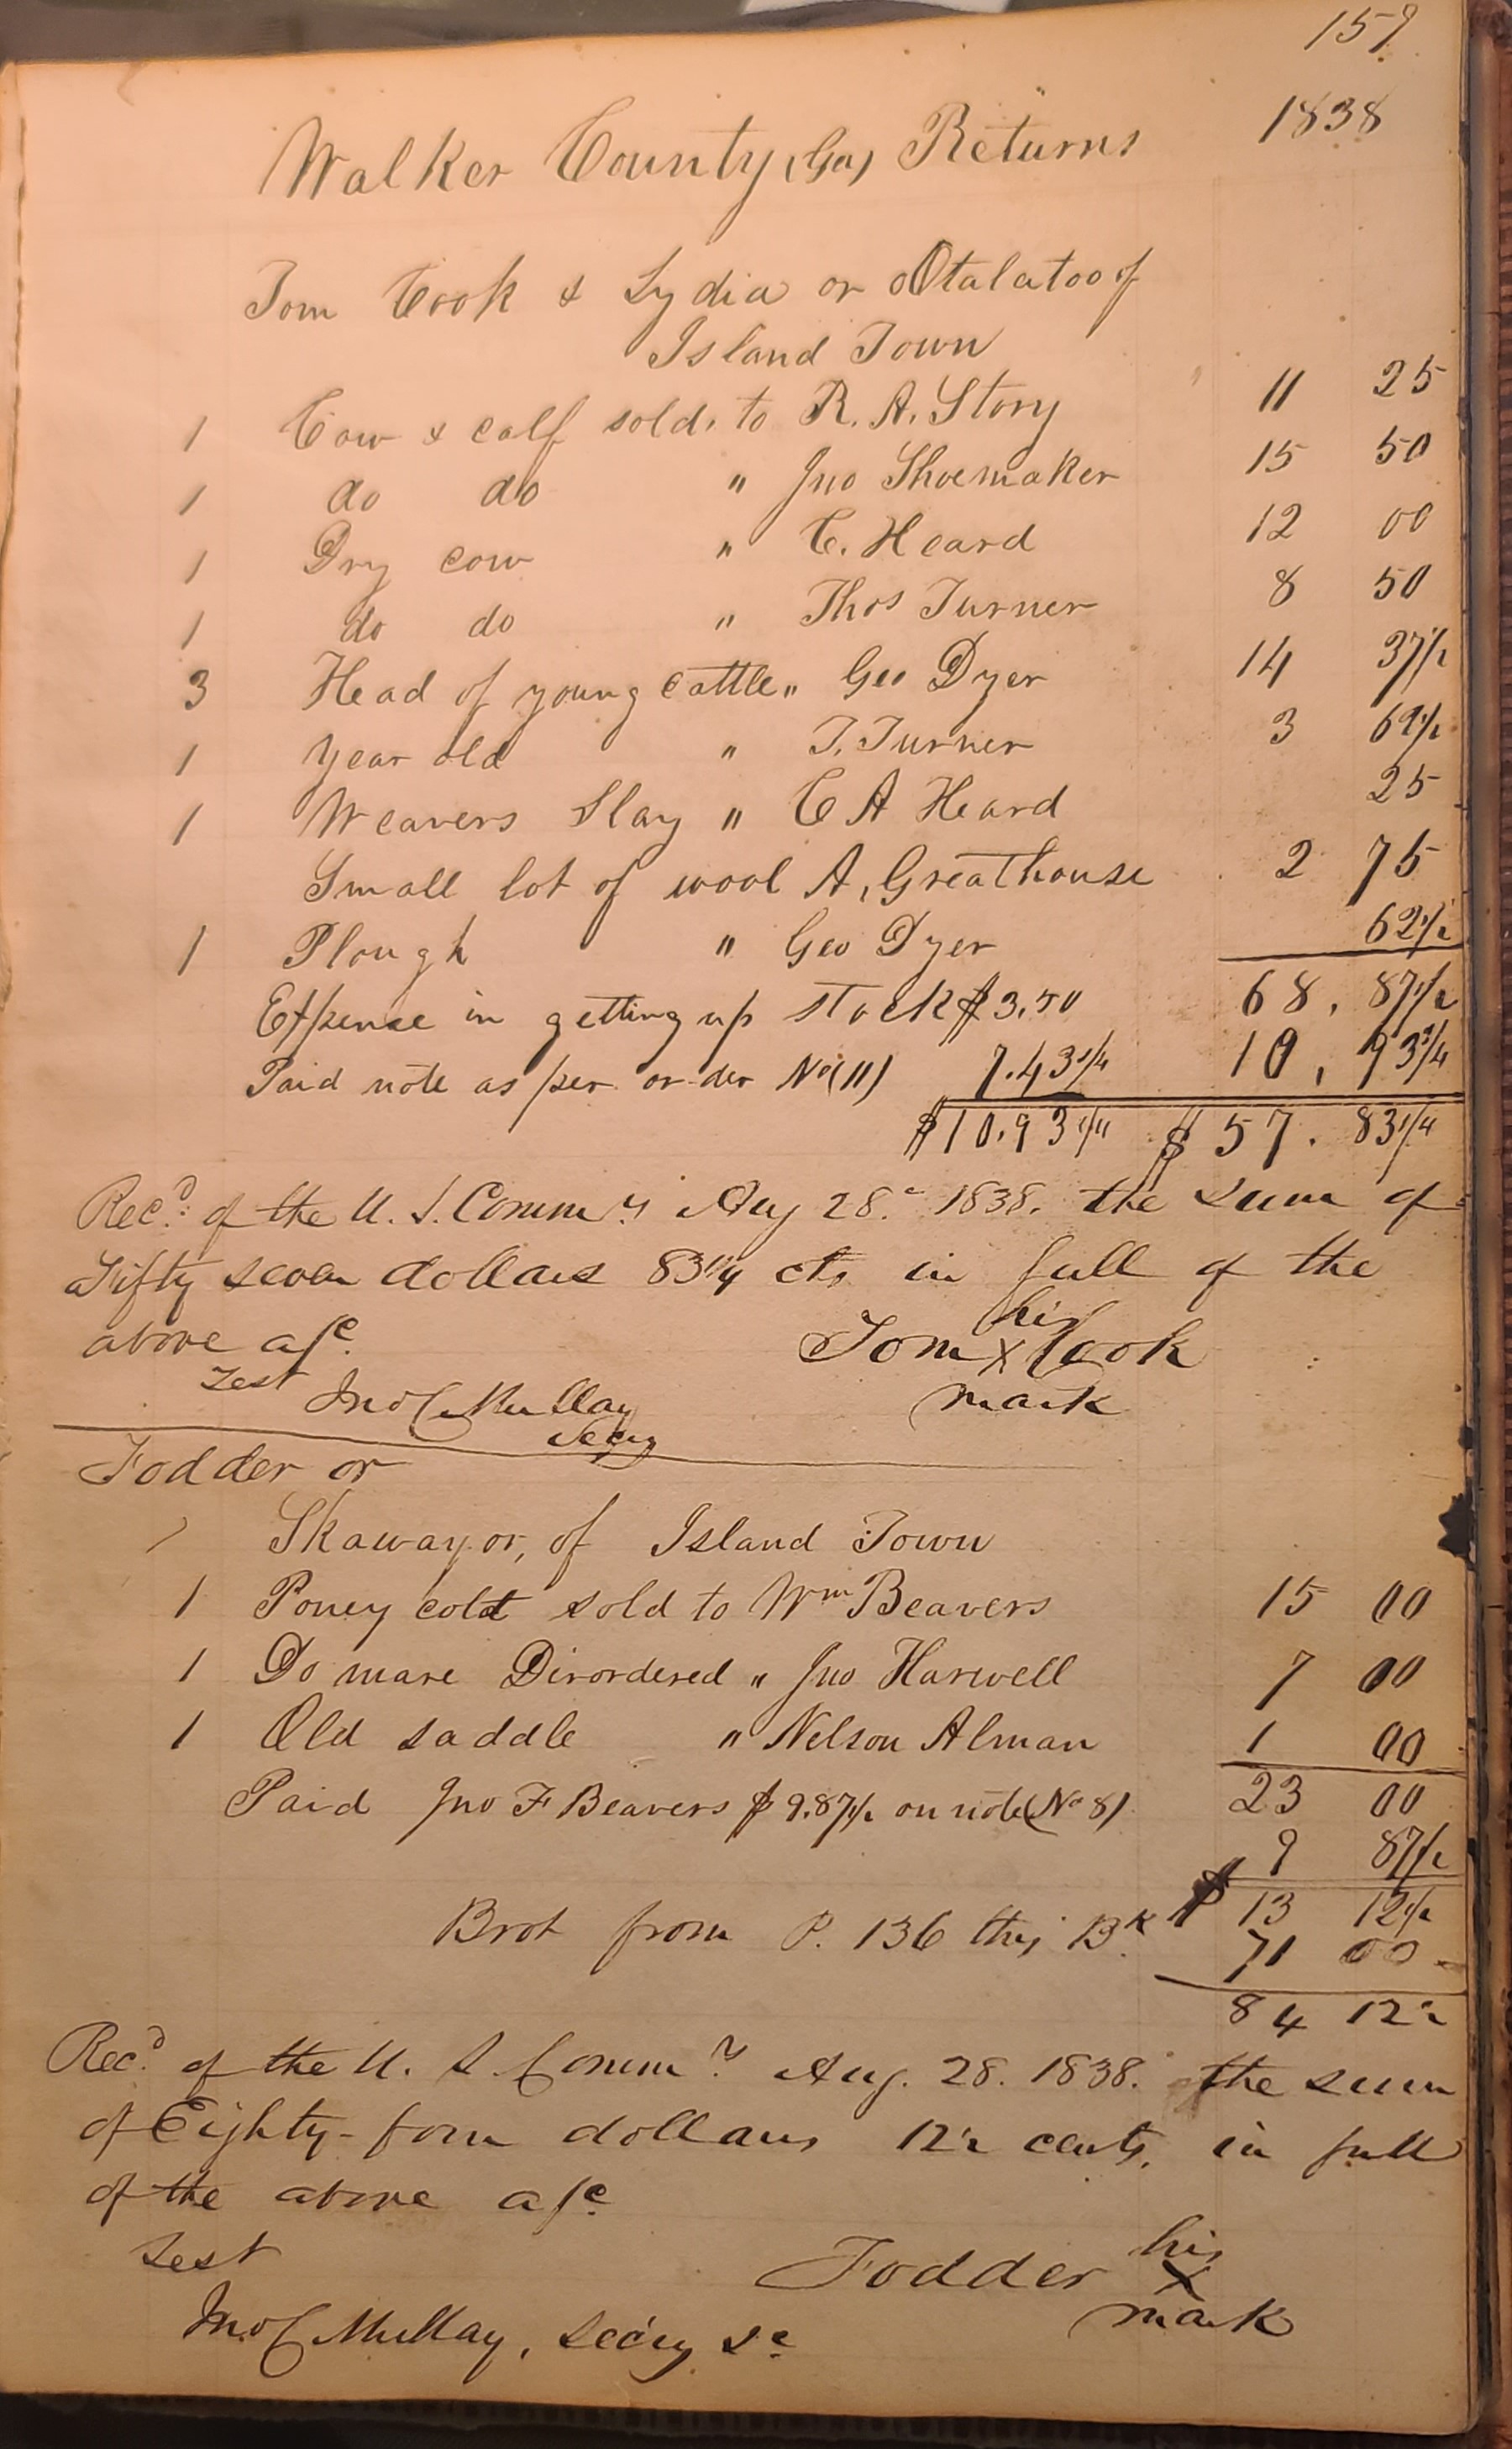 159
1838
Walker County, (Ga) Returns
Tom Cook & Lydia or Otalatoo of
Island Town
1 Cow & calf sold, to R. A. Story 11 25
1 do do " Jno Shoemaker 15 50
1 Dry cow " C. Heard 12 00
1 do do " Thos Turner 8 50
3 Head of young cattle " Geo Dyer 14 37 1/2
1 Year old " T. Turner 3 62 1/2
1 Weavers Slay " C A Heard 25
Small lot of wool A, Greathouse 2 75
1 Plough " Geo Dyer 62 1/2
Expence in getting up stock $3.50 68. 87 1/2
Paid note as per order No (11) 7.43 3/4 10. 93 3/4
$10.93 3/4 $57. 83 1/4
Recd. of the U. S. Commrs Aug 28. 1838. the sum of
Fifty seven dollars 83 1/4 cts in full of the
above a/c.
his
Tom X Cook
mark
Test
Jno C Mullay
Secy
Fodder or
Skawayor, of Island Town
1 Poney colt sold to Wm Beavers 15 00
1 Do mare Disordered " Jno Harwell 7 00
1 Old saddle " Nelson Alman 1 00
Paid Jno F Beavers $9.87 1/2 on note (No 8) 23 00
9 87 1/2
$13 12 1/2
Brot from P. 136 this Bk. 71 00
84 12 1/2
Recd. of the U. S. Commr Aug. 28. 1838. the sum
of Eighty-four dollars 12 1/2 cents. in full
of the above a/c
Test
his
Fodder X
mark
Jno C Mullay, Sec'ry &c